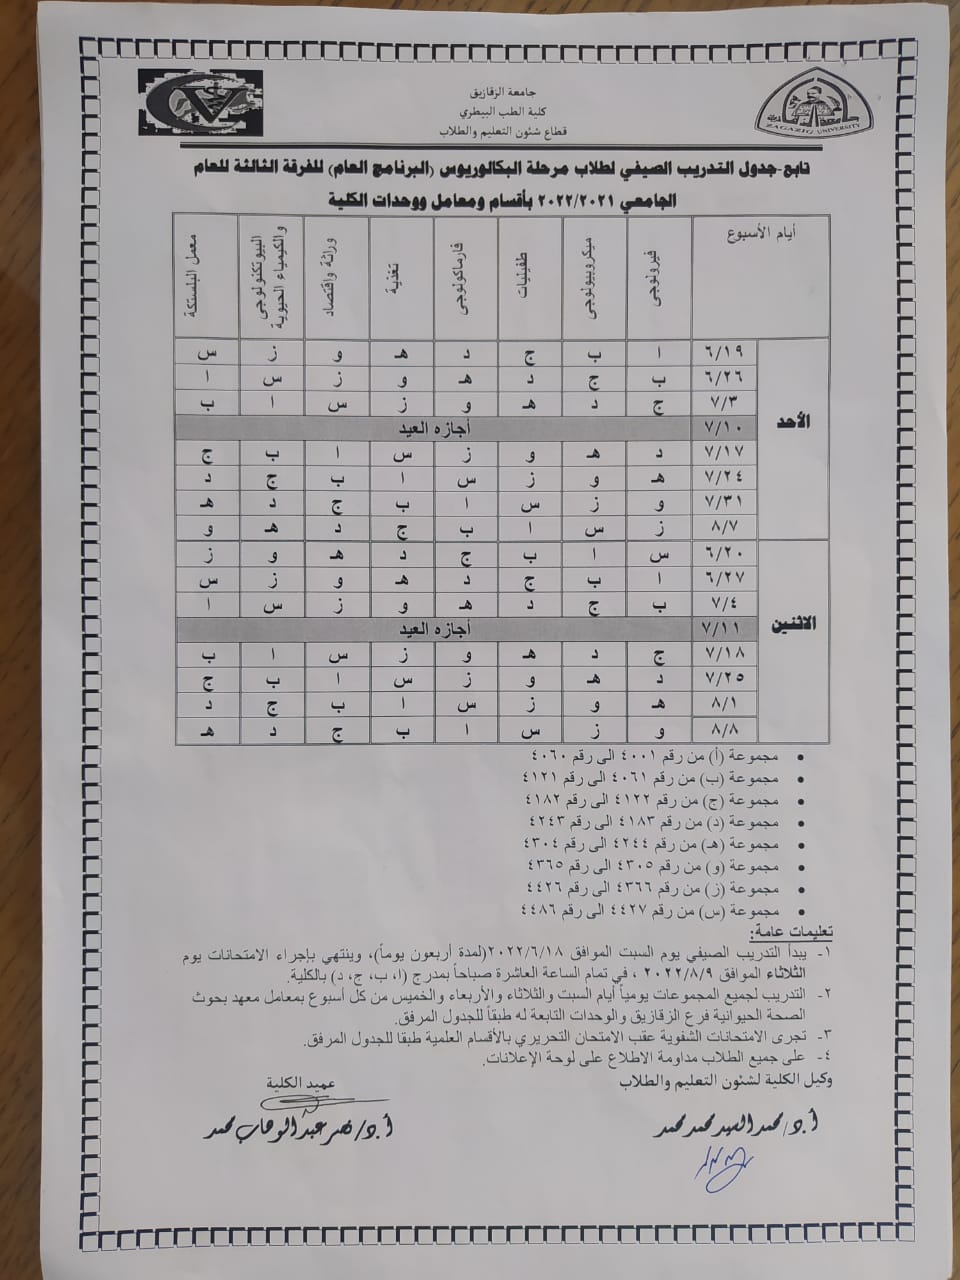 جامعة الزقازيق
كلية الطب البيطري
قطاع شئون التعليم والطلاب
ZAGAZIG UNIVERSITY
تابع-جدول التدريب الصيفي لطلاب مرحلة البكالوريوس (البرنامج العام) للفرقة الثالثة للعام
الجامعي ٢٠٢٢/٢٠٢١ بأقسام ومعامل ووحدات الكلية
أيام الأسبوع فيرولوجى ميكروبيولوجى طفيليات فارماكولوجى تغذية وراثة واقتصاد البيوتكنولوجى والكيمياء الحيوية معمل البلستكة
الأحد
٦/١٩ ا ب ج د هـ و ز س
٦/٢٦ ب ج د هـ و ز س ا
٧/٣ ج د هـ و ز س ا ب
٧/١٠ أجازه العيد
٧/١٧ د هـ و ز س ا ب ج
٧/٢٤ هـ و ز س ا ب ج د
٧/٣١ و ز س ا ب ج د هـ
٨/٧ ز س ا ب ج د هـ و
الاثنين
٦/٢٠ س ا ب ج د هـ و ز
٦/٢٧ ا ب ج د هـ و ز س
٧/٤ ب ج د هـ و ز س ا
٧/١١ أجازه العيد
٧/١٨ ج د هـ و ز س ا ب
٧/٢٥ د هـ و ز س ا ب ج
٨/١ هـ و ز س ا ب ج د
٨/٨ و ز س ا ب ج د هـ
• مجموعة (أ) من رقم ٤٠٠١ الى رقم ٤٠٦٠
• مجموعة (ب) من رقم ٤٠٦١ الى رقم ٤١٢١
• مجموعة (ج) من رقم ٤١٢٢ الى رقم ٤١٨٢
• مجموعة (د) من رقم ٤١٨٣ الى رقم ٤٢٤٣
• مجموعة (هـ) من رقم ٤٢٤٤ الى رقم ٤٣٠٤
• مجموعة (و) من رقم ٤٣٠٥ الى رقم ٤٣٦٥
• مجموعة (ز) من رقم ٤٣٦٦ الى رقم ٤٤٢٦
• مجموعة (س) من رقم ٤٤٢٧ الى رقم ٤٤٨٦
تعليمات عامة:
١- يبدأ التدريب الصيفي يوم السبت الموافق ٢٠٢٢/٦/١٨(لمدة أربعون يوماً)، وينتهي بإجراء الامتحانات يوم
الثلاثاء الموافق ٢٠٢٢/٨/٩ ، في تمام الساعة العاشرة صباحاً بمدرج (ا، ب، ج، د) بالكلية.
٢- التدريب لجميع المجموعات يومياً أيام السبت والثلاثاء والأربعاء والخميس من كل أسبوع بمعامل معهد بحوث
الصحة الحيوانية فرع الزقازيق والوحدات التابعة له طبقاً للجدول المرفق.
٣- تجرى الامتحانات الشفوية عقب الامتحان التحريري بالأقسام العلمية طبقا للجدول المرفق.
٤- على جميع الطلاب مداومة الاطلاع على لوحة الإعلانات.
وكيل الكلية لشئون التعليم والطلاب
أ.د/ محمد السيد محمد محمد
عميد الكلية
أ.د/ نصر عبد الوهاب محمد